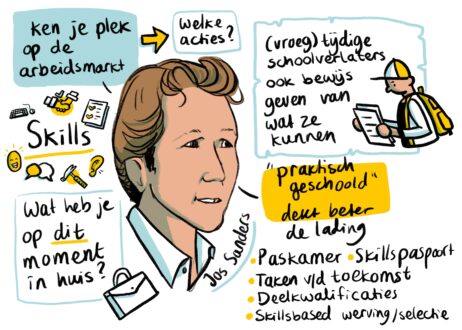 ken je plek
op de
arbeidsmarkt
welke
acties?
(vroeg)tijdige
schoolverlaters
ook bewijs
geven van
wat ze
kunnen
Skills
"praktisch
geschoold"
dekt beter
de lading
Wat heb je
op dit
moment
in huis?
Jos Sanders
• Paskamer • Skillspaspoort
• Taken v/d toekomst
• Deelkwalificaties
• Skillsbased werving/selectie